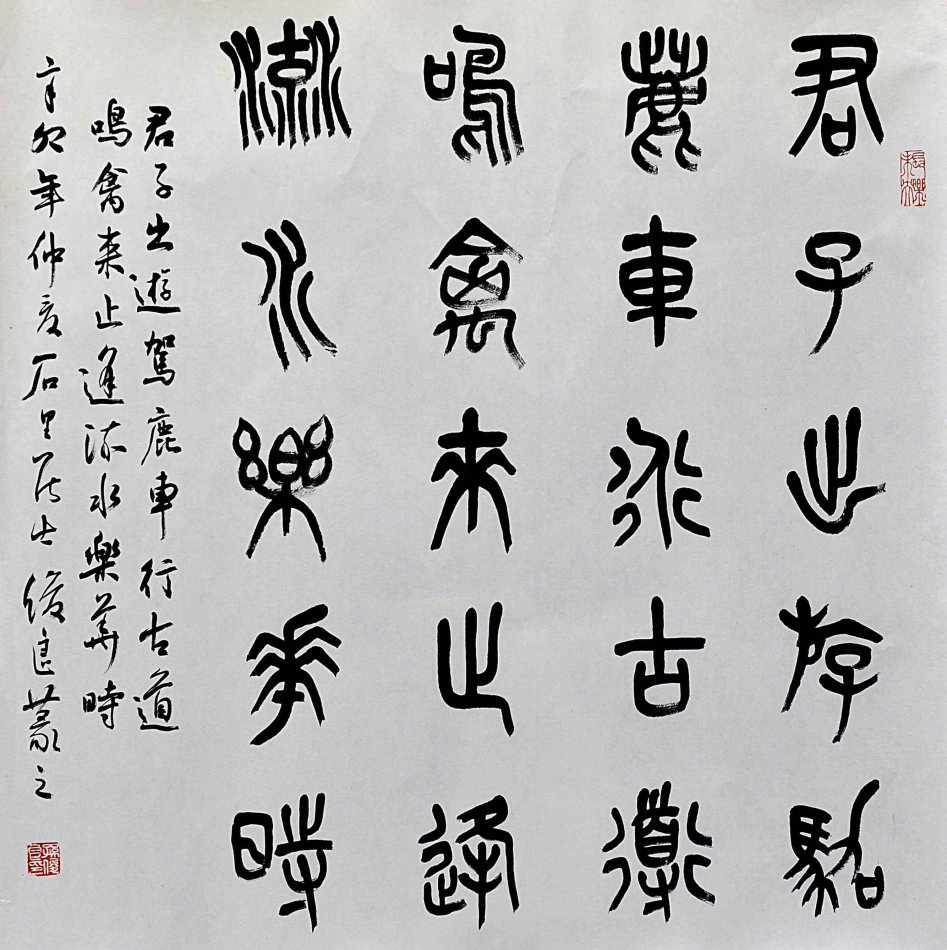 君子出遊駕
鹿車行古道
鳴禽來止逢
流水樂華時
君子出遊駕鹿車行古道
鳴禽來止逢流水樂華時
辛卯年仲夏石里後良篆之